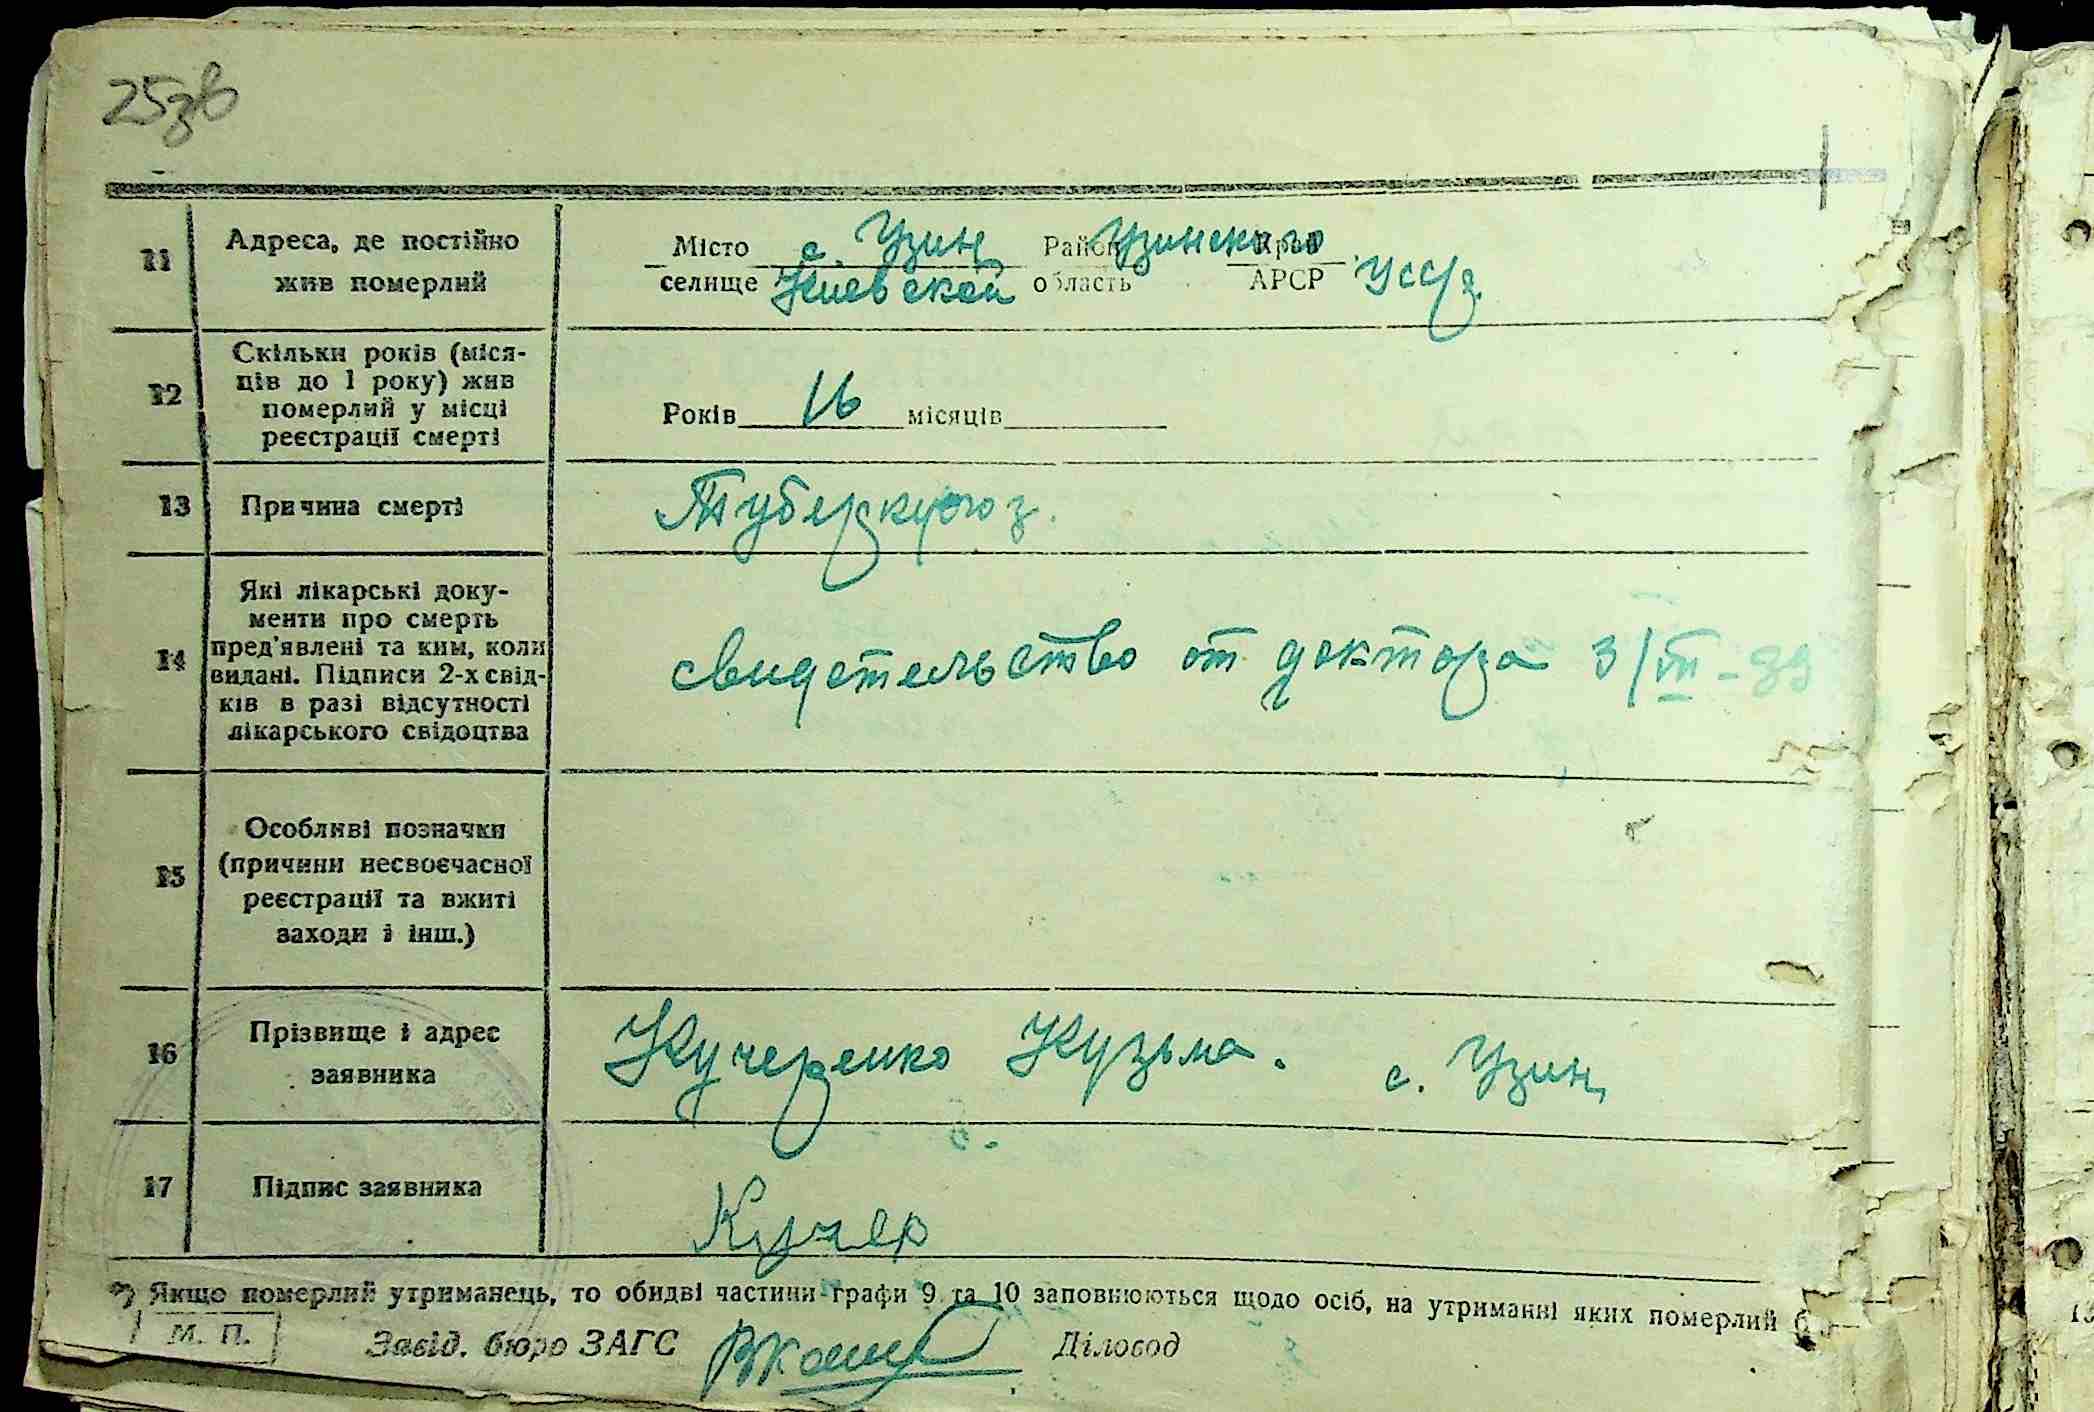 25зв
11 Адреса, де постійно жив померлий
Місто с. Узин Район Узинского Край
селище Киевской область АРСР УССР
12 Скільки років (міся-
ців до 1 року) жив
померлий у місці
реєстрації смерті
Років 16 місяців
13 Причина смерті
Туберкулоз.
14 Які лікарські доку-
менти про смерть
пред'явлені та ким, коли
видані. Підписи 2-х свід-
ків в разі відсутності
лікарського свідоцтва
свидетельство от доктора 3/VII-39
15 Особливі позначки
(причини несвоєчасної
реєстрації та вжиті
заходи і інш.)
16 Прізвище і адрес
заявника
Кучеренко Кузьма. с. Узин
17 Підпис заявника
Кучер
*) Якщо померлий утриманець, то обидві частини графи 9 та 10 заповнюються щодо осіб, на утриманні яких померлий б
М. П. Завід. бюро ЗАГС Діловод